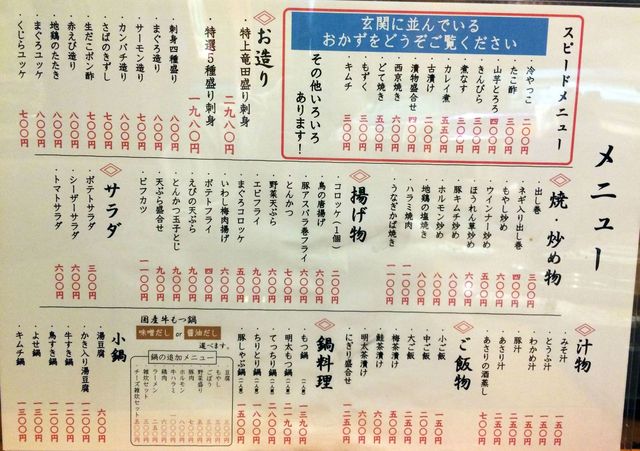 メニュー
スピードメニュー
玄関に並んでいる
おかずをどうぞご覧ください
・冷やっこ 二〇〇円
・たこ酢 三〇〇円
・山芋とろろ 四〇〇円
・きんぴら 三〇〇円
・煮なす 三〇〇円
・カレイ煮 五五〇円
・古漬け 二〇〇円
・漬物盛合せ 四〇〇円
・西京焼き 五〇〇円
・どて焼き 五〇〇円
・もずく 三〇〇円
・キムチ 三〇〇円
その他いろいろ
あります!
お造り
・特上竜田盛り刺身 二九八〇円
・特選5種盛り刺身 一九八〇円
・刺身四種盛り
・まぐろ造り 八〇〇円
・サーモン造り 八〇〇円
・カンパチ造り 八〇〇円
・さばのきずし 七〇〇円
・生だこポン酢 七〇〇円
・赤えび造り 八〇〇円
・地鶏のたたき 八〇〇円
・まぐろユッケ 八〇〇円
・くじらユッケ 七〇〇円
焼・炒め物
・出し巻 三〇〇円
・ネギ入り出し巻 四〇〇円
・もやし炒め
・ウインナー炒め 五〇〇円
・ほうれん草炒め 六〇〇円
・豚キムチ炒め 八〇〇円
・ホルモン炒め 八〇〇円
・地鶏の塩焼き 八〇〇円
・ハラミ焼肉 一一〇〇円
・うなぎかば焼き 一一〇〇円
揚げ物
・コロッケ(1個) 二〇〇円
・鳥の唐揚げ 六〇〇円
・豚アスパラ巻フライ 六〇〇円
・とんかつ 七〇〇円
・野菜天ぷら 六〇〇円
・エビフライ 九〇〇円
・まぐろコロッケ 五〇〇円
・いわし梅肉揚げ 六〇〇円
・ポテトフライ 四〇〇円
・えびの天ぷら 九〇〇円
・とんかつ玉子とじ 九〇〇円
・天ぷら盛合せ 九〇〇円
・ビフカツ 一一〇〇円
サラダ
・ポテトサラダ 三〇〇円
・シーザーサラダ 六〇〇円
・トマトサラダ 六〇〇円
汁物
・みそ汁 一五〇円
・とうふ汁
・わかめ汁
・豚汁
・あさり汁
・あさりの酒蒸し 七〇〇円
ご飯物
・小ご飯 一五〇円
・中ご飯 二〇〇円
・大ご飯 二五〇円
・梅茶漬け
・鮭茶漬け
・明太茶漬け
・にぎり盛合せ
鍋料理
・もつ鍋(1人前) 一三九〇円
・明太もつ鍋(1人前)
・てっちり鍋(1人前)
・ちりとり鍋(1人前)
・豚しゃぶ鍋(1人前) 一五〇〇円
国産牛もつ鍋
味噌だし or 醤油だし
選べます。
鍋の追加メニュー
豆腐
もやし
ごぼう
野菜盛り
豚肉
ホルモン
牛ハラミ
鶏肉
ラーメン
雑炊セット
チーズ雑炊セット
小鍋
・湯豆腐 六〇〇円
・かき入り湯豆腐
・牛すき鍋
・鳥すき鍋
・よせ鍋
・キムチ鍋 一三〇〇円